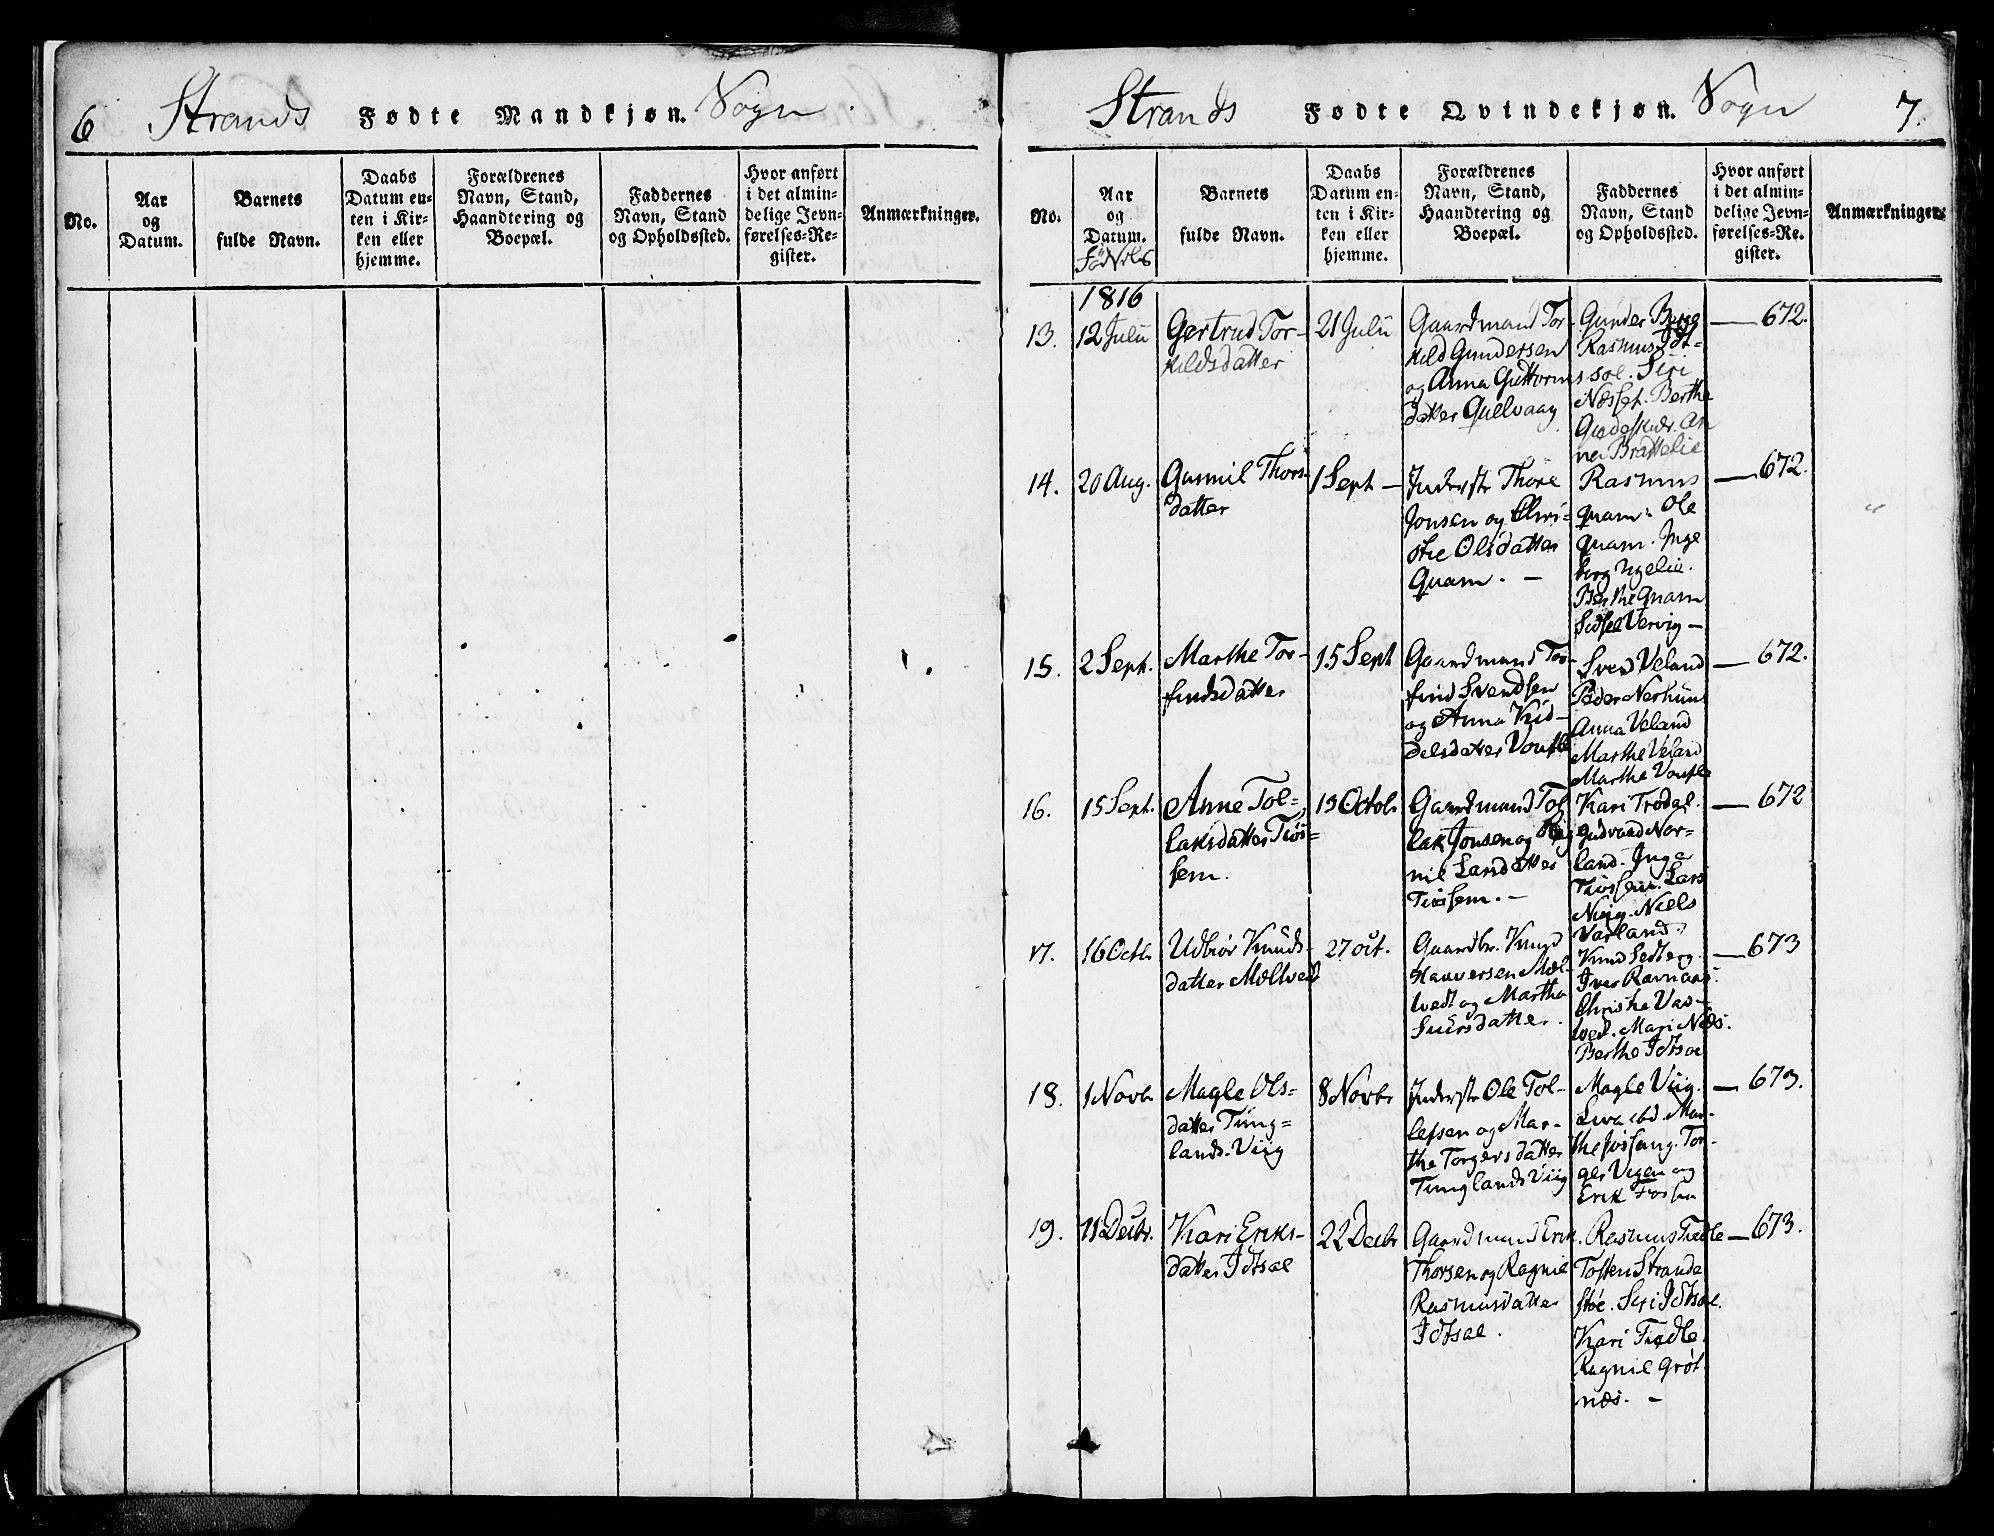 6 Strands Fødte Mandkjøn. Sogn.
No.
Aar
og
Datum.
Barnets
fulde Navn.
Daabs
Datum en-
ten i Kir-
ken eller
hjemme.
Forældrenes
Navn, Stand,
Haandtering og
Boepæl.
Faddernes
Navn, Stand
og Opholdssted.
Hvor anført
i det almin-
delige Jevn-
førelses-Re-
gister.
Anmærkninger.
Strands Fødte Qvindekjøn. Sogn 7.
No.
Aar
og
Datum.
Fødsels
Barnets
fulde Navn.
Daabs
Datum en-
ten i Kir-
ken eller
hjemme.
Forældrenes
Navn, Stand,
Haandtering og
Boepæl.
Faddernes
Navn, Stand
og Opholdssted.
Hvor anført
i det almin-
delige Jevn-
førelses-Re-
gister.
Anmærkninger.
1816
13.
12 Julii
Gertrud Tor-
kildsdatter
21 Julii
Gaardmand Tor-
kild Gundersen
og Anna Guttorms
datter Qvelvaag
Gunder
Rasmus Idt-
soe. Siri
Næsset. Berthe
An
na Brattelie
— 672.
14.
20 Aug.
Gunnil Thors-
datter
1 Sept —
Inderste Thore
Jonsen og Chri-
stie Olsdatter
Qvam. —
Rasmus
Qvam. Ole
Qvam. Inge
borg
Berthe Qvam
Sidsel Vervig —
— 672.
15.
2 Sept.
Marthe Tor-
findsdatter
15 Sept
Gaardmand Tor-
find Svendsen
og Anna Kid-
delsdatter
Svend Veland
Peder Nerhuus
Anna Veland
Marthe Veland
Marthe
— 672.
16.
15 Sept.
Anne Tol-
laksdatter Tiøs-
sem.
13 Octob.
Gaardmand Tol
lak Jonsen og Rag
nil Larsdatter
Tiøssem. —
Kari Trodal.
Nor-
land. Inga
Tiøssem. Lars
Niels
Varland.
— 672
17.
16 Octb.
Udbiør Knuds-
datter Mælved
27 oct.
Gaardbr. Knud
Haaversen Mæl-
ved og Martha
Siursdatter.
Knud Sedberg.
Iver Ravnaas.
Christie Vas-
ved. Mari Næs.
Berthe Idtsoe
— 673
18.
1 Novb.
Magle Ols-
datter Tung-
lands. Viig
8 Novb.
Inderste Ole Tol-
lefsen og Mar-
the Torgersdatter
Tunglands Viig
Magle Viig.
ibd. Mar-
the Jøssang. Tor-
ger Vigen og
Erik Fossan
— 673.
19.
11 Decbr.
Kari Eriks-
datter Idtsoe
22 Decbr
Gaardmand Erik
Thorsen og Ragnil
Rasmusdatter
Idtsoe.
Rasmus Tiedle
Tosten Strande
støe. Siri Idtsoe.
Kari Tiedle.
Ragnil Grøt-
næs. —
— 673.